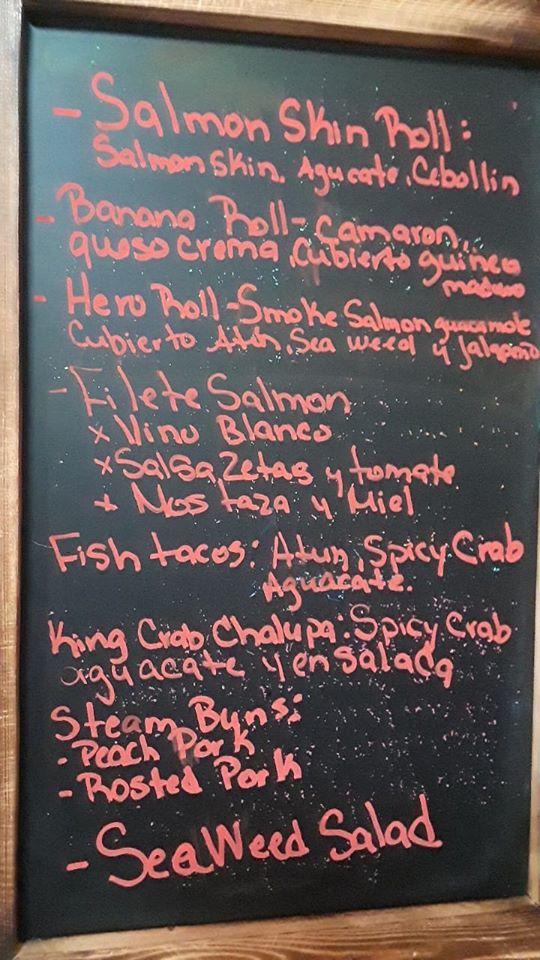 - Salmon Skin Roll:
Salmon Skin, Agucate, Cebollin
- Banana Roll - Camaron,
queso crema, Cubierto guineo
maduro
- Hero Roll - Smoke Salmon guacamole
Cubierto Atun, Sea weed y Jalapeño
- Filete Salmon
x Vino Blanco
x Salsa Zetas y tomate
+ Mostaza y Miel
Fish tacos: Atun, Spicy Crab
Aguacate.
King Crab Chalupa: Spicy Crab
aguacate y ensalada
Steam Buns:
- Peach Pork
- Rosted Pork
- SeaWeed Salad